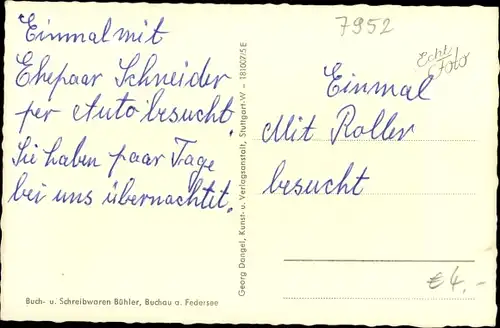 Einmal mit
Ehepaar Schneider
per Auto besucht.
Sie haben paar Tage
bei uns übernachtet.
Buch- u. Schreibwaren Bühler, Buchau a. Federsee
Georg Dangel, Kunst- u. Verlagsanstalt, Stuttgart-W - 181007/5 E
7952
Echt Foto
Einmal
Mit Roller
besucht
€ 4,-